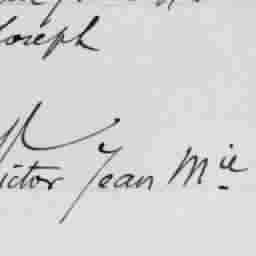 Joseph
Victor Jean Mie